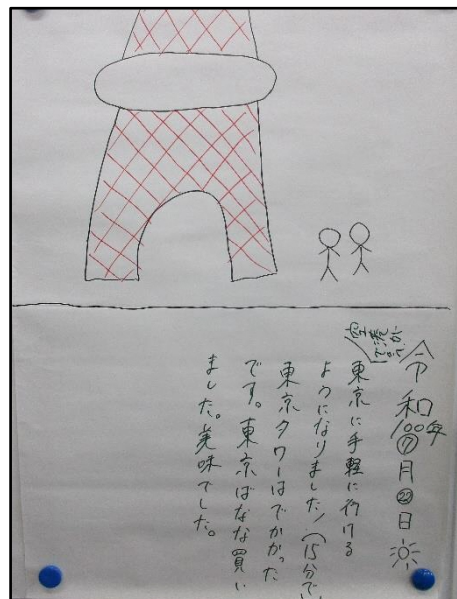 令和100年⑦月㉒日
空港ができ
東京に手軽に行ける
ようになりました!(15分で
東京タワーはでかかった
です。東京ばなな買い
ました。美味でした。